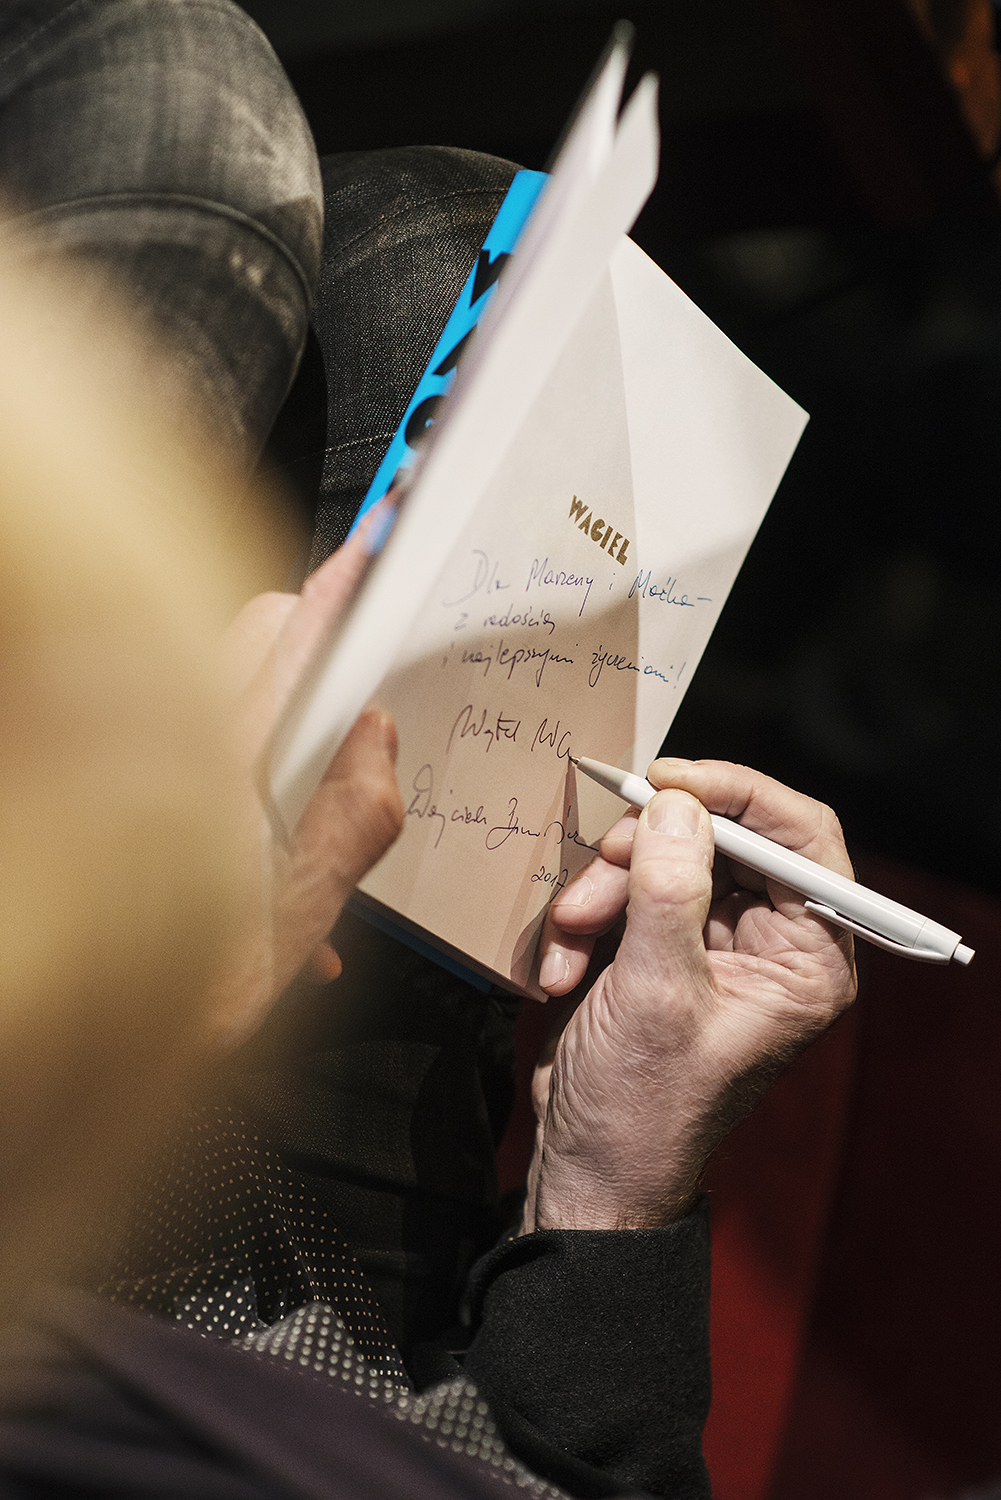 WAGIEL
Dla Marzeny i Maćka –
z radością
i najlepszymi życzeniami!
Wojtek Wa
Wojciech
2017